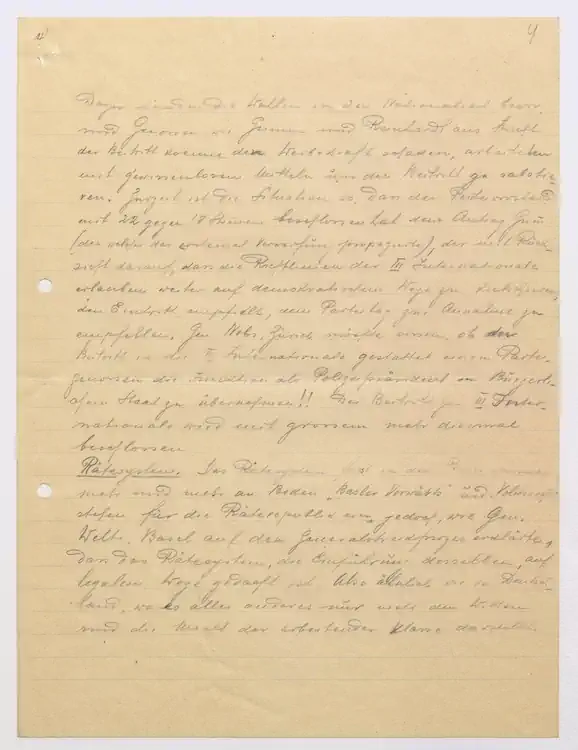 4
die Wahlen in den Nationalrat bevor
und Genossen wie Grimm und Reinhardt aus Furcht
der Beitritt könnte der Werbekraft schaden, arbeiteten
mit gewissenlosen Mitteln um den Beitritt zu sabotie-
ren. Zurzeit ist die Situation so, dass der Parteivorstand
mit 22 gegen Stimmen beschlossen hat dem Antrag Grimm
(der welcher propagierte), der mit Rück-
sicht darauf, dass die Richtlinien der III Internationale
erlauben weiter auf demokratischem Wege zu
den Eintritt empfiehlt, dem Parteitag zur Annahme zu
empfehlen. Gen Nobs, Zürich möchte wissen, ob der
Beitritt in die Internationale gestattet einem Partei-
genossen die Funktion als Polizeipräsident im Bürgerli-
chen Staat zu übernehmen!! Der Beitritt zur III Inter-
nationale wird mit grossem mehr diesmal
beschlossen
Rätesystem. Das Rätesystem, in der
mehr und mehr an Boden „Basler Vorwärts" und
für die Räterepublik ein, jedoch, wie Gen.
Welti, Basel auf dem Generalstreikprozess erklärte,
dass das Rätesystem, die Einführung desselben, auf
legalem Wege gedacht ist. Also ähnlich wie in Deutsch-
land, wo es alles anderes nur nicht den Willen
und die Macht der arbeitenden Klasse darstellt.